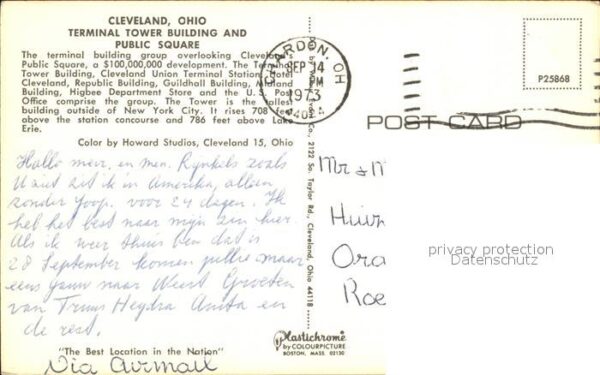 CLEVELAND, OHIO
TERMINAL TOWER BUILDING AND
PUBLIC SQUARE
The terminal building group overlooking Cleveland's
Public Square, a $100,000,000 development. The Terminal
Tower Building, Cleveland Union Terminal Station, Hotel
Cleveland, Republic Building, Guildhall Building, Midland
Building, Higbee Department Store and the U.S. Post
Office comprise the group. The Tower is the tallest
building outside of New York City. It rises 708 feet
above the station concourse and 786 feet above Lake
Erie.
Color by Howard Studios, Cleveland 15, Ohio
Hallo meneer, en men. Rynkels zoals
U ziet zit ik in Amerika, alleen
zonder Joop. voor 24 dagen. Ik
heb het best naar mijn zin hier.
Als ik weer thuis ben dat is
28 September komen jullie maar
eens gauw naar Weert Groeten
van Truus Heydra Anita en
de rest.
"The Best Location in the Nation"
Via Airmail
Plastichrome
by COLOURPICTURE
BOSTON, MASS. 02130
Co., 2122 So. Taylor Rd., Cleveland, Ohio 44118
CHARDON, OH
SEP 14
PM
1973
P25868
POST CARD
Mr &
Huiz
Ora
Roe
privacy protection
Datenschutz